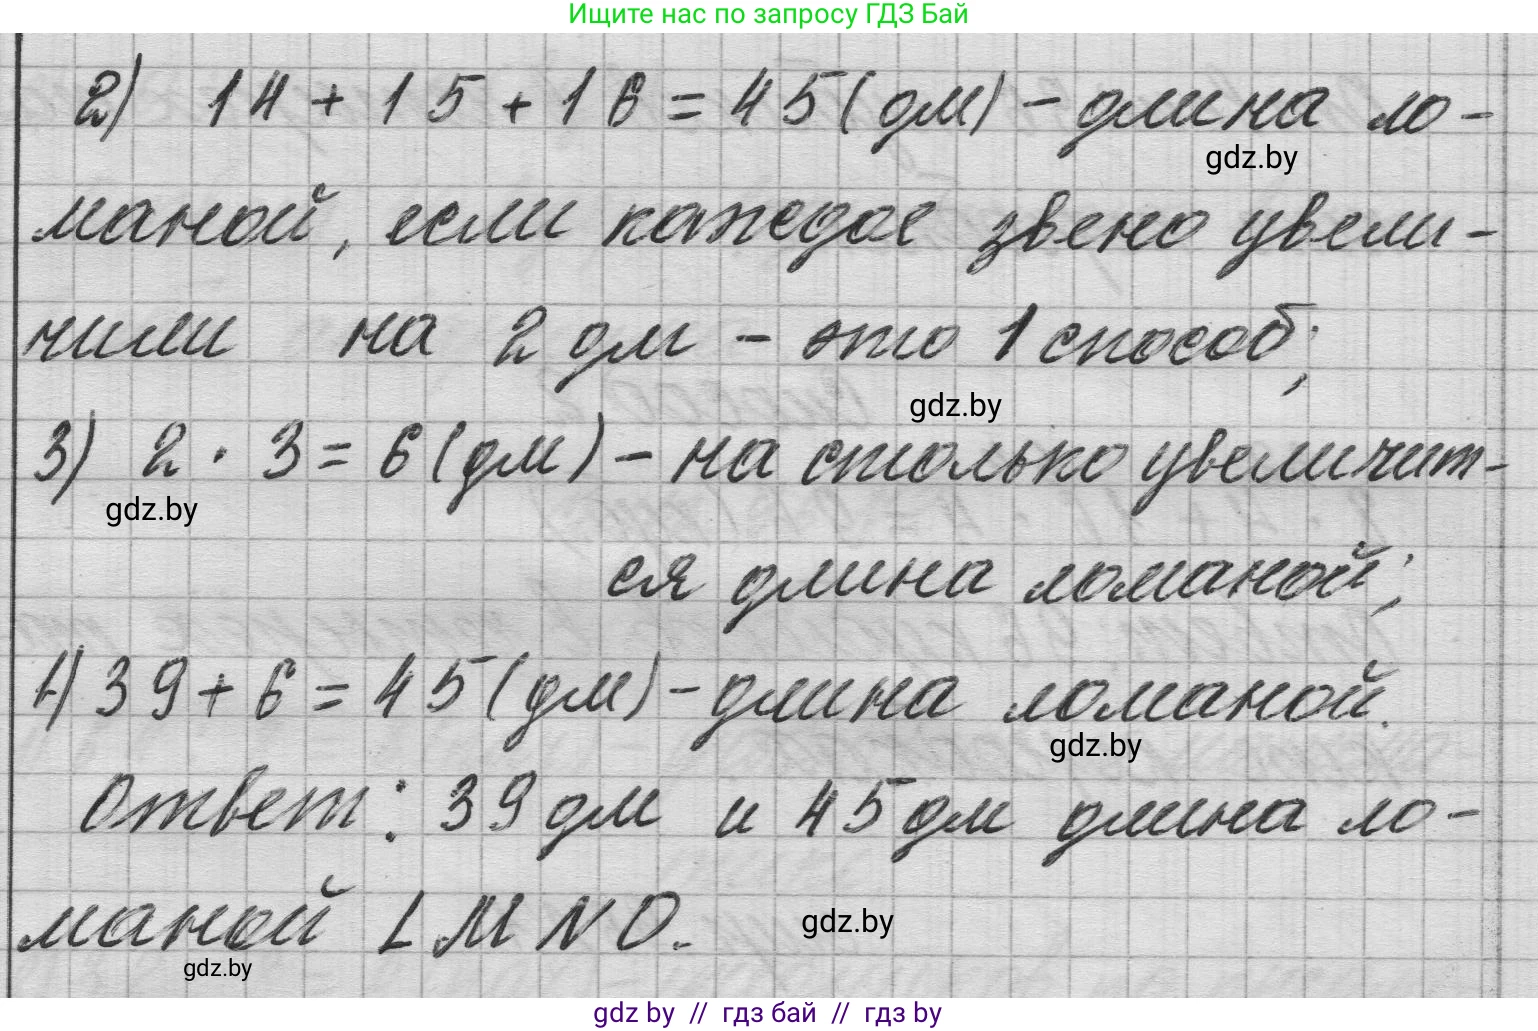 Ищите нас по запросу ГДЗ Бай
2) 14 + 15 + 16 = 45 (дм) - длина ло-
gdz.by
маной, если каждое звено увели-
чили на 2 дм - это 1 способ;
gdz.by
3) 2 · 3 = 6 (дм) - на столько увеличит-
gdz.by
ся длина ломаной;
4) 39 + 6 = 45 (дм) - длина ломаной.
gdz.by
Ответ: 39 дм и 45 дм длина ло-
маной LMNO.
gdz.by
gdz.by
gdz by // гдз бай // гдз by